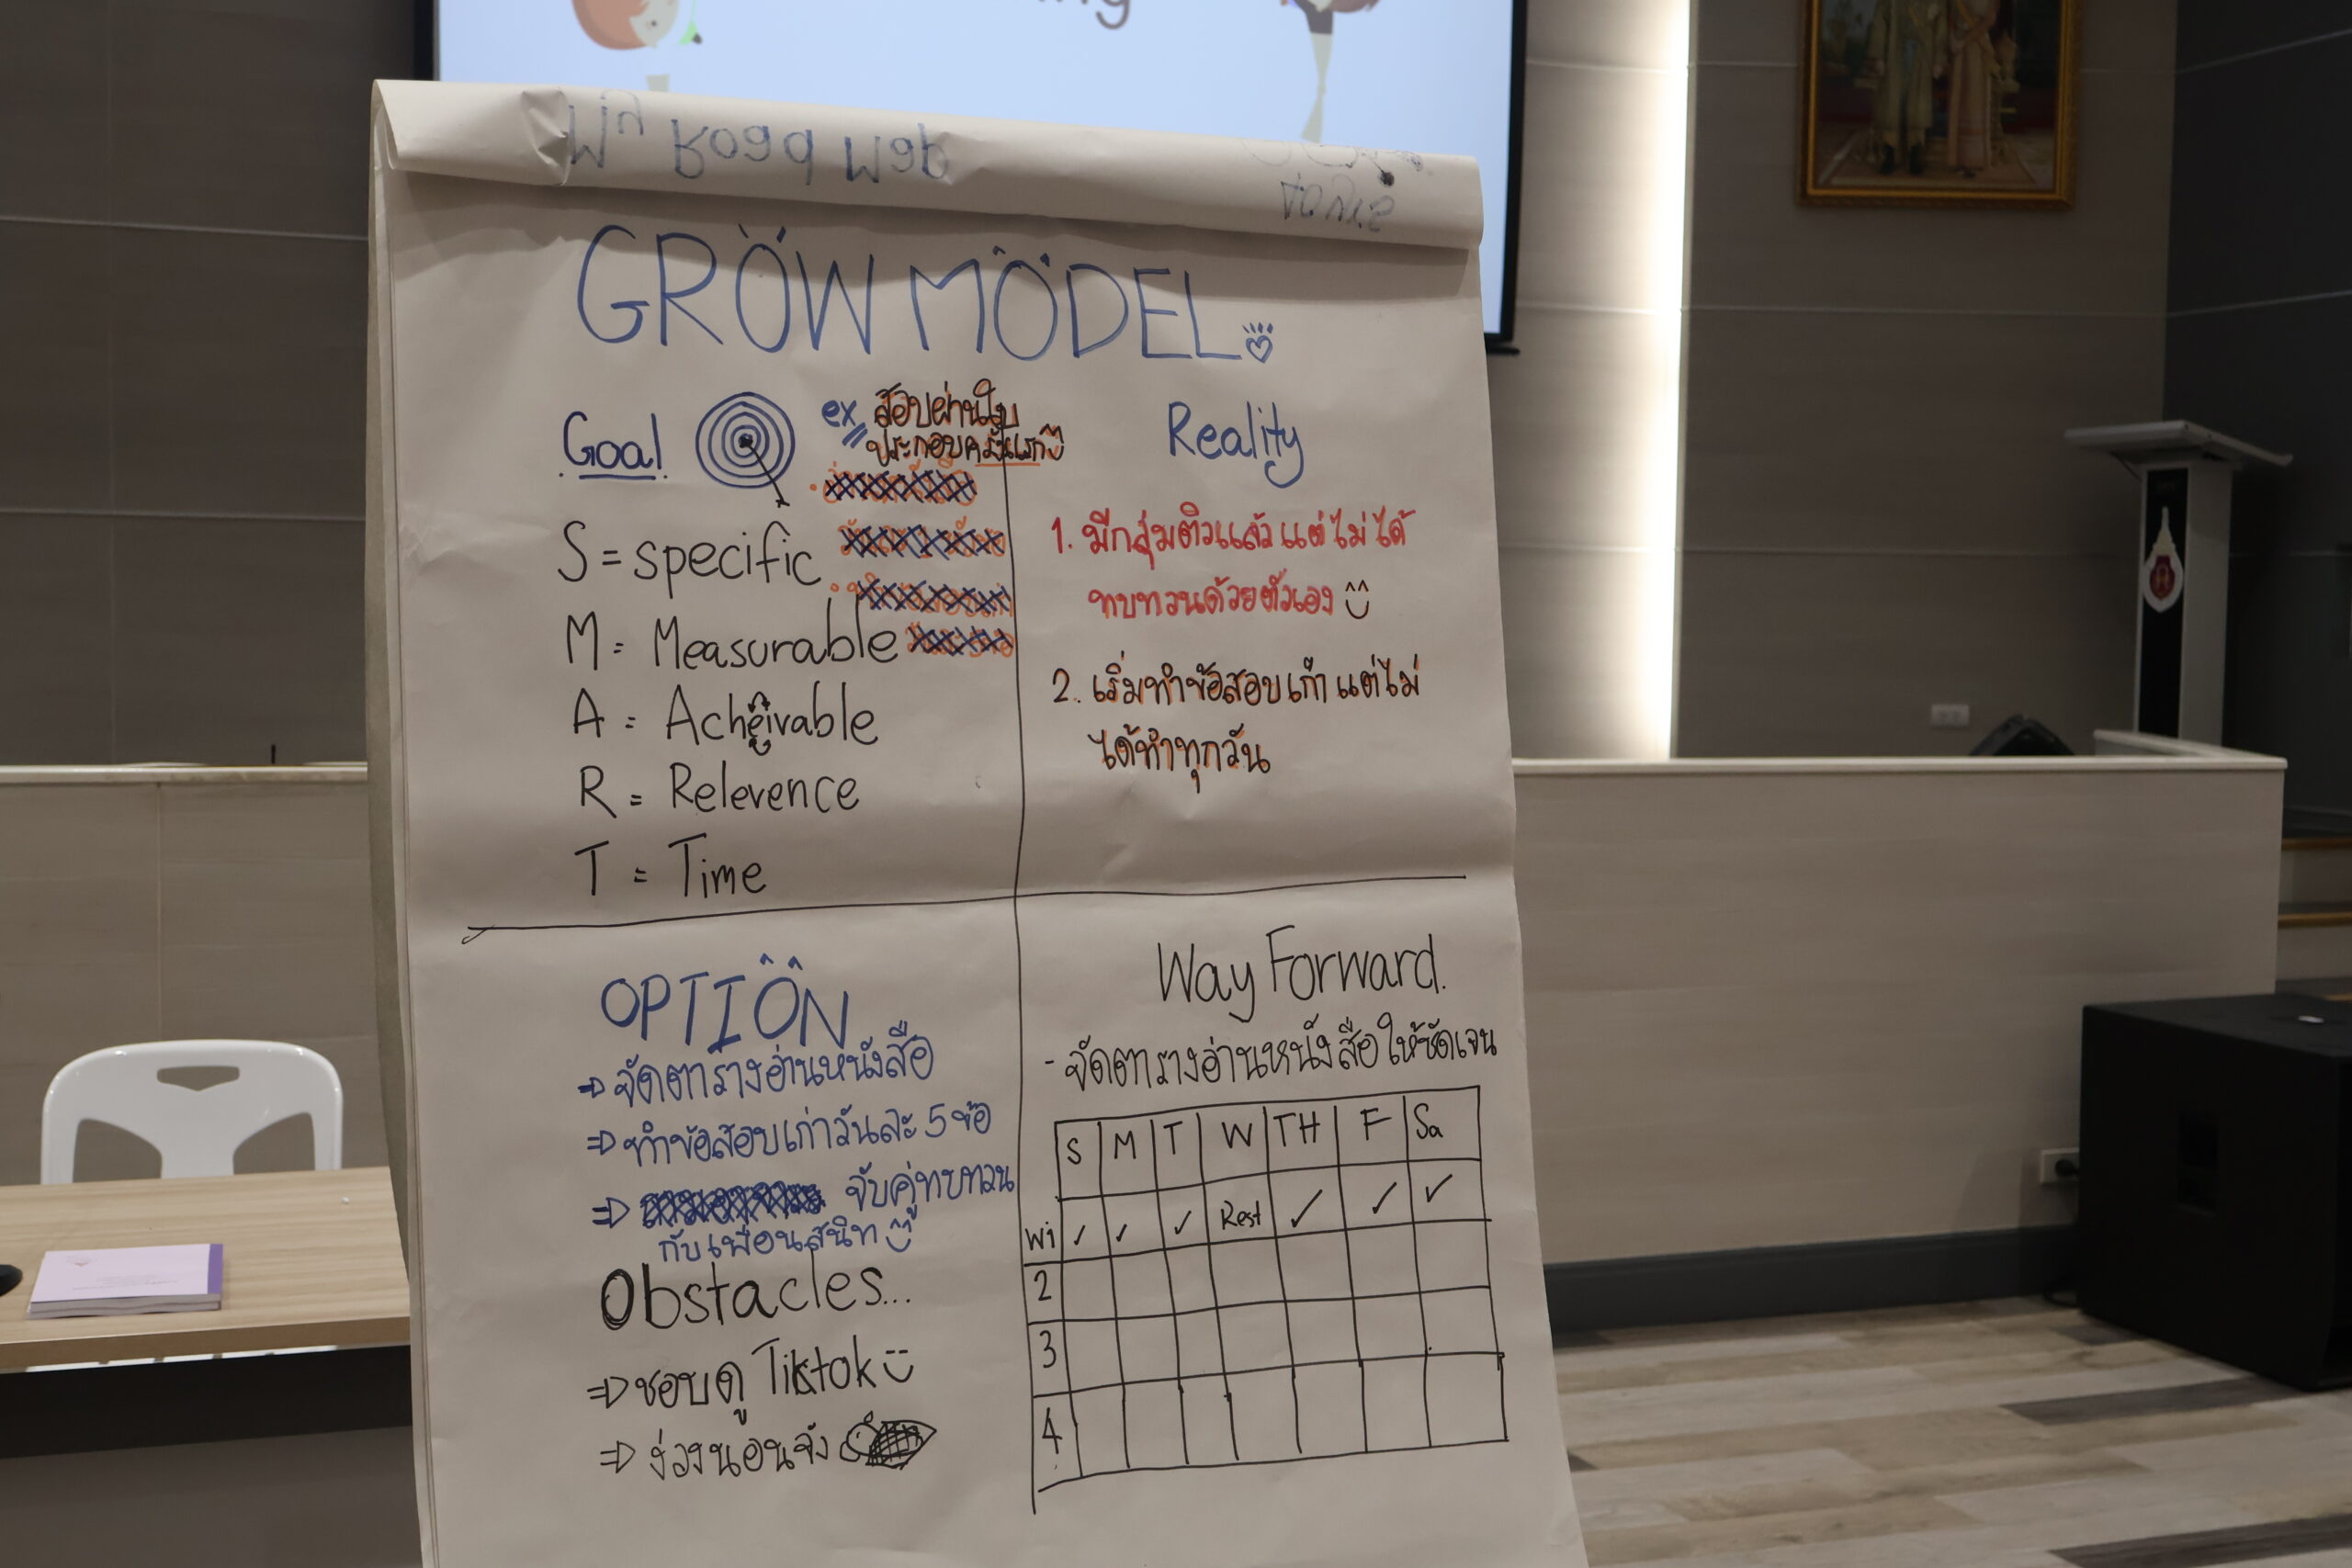 ing
My Road Map
GROW MODEL
Goal
ex สอบผ่านใบ
ประกอบครั้งแรก
S = specific
M = Measurable
A = Acheivable
R = Relevence
T = Time
Reality
1. มีกลุ่มติวแล้วแต่ไม่ได้
ทบทวนด้วยตัวเอง
2. เริ่มทำข้อสอบเก่าแต่ไม่
ได้ทำทุกวัน
OPTION
⇒ จัดตารางอ่านหนังสือ
⇒ ทำข้อสอบเก่าวันละ 5 ข้อ
⇒ จับคู่ทบทวน
กับเพื่อนสนิท
Obstacles...
⇒ ชอบดู Tiktok
⇒ ง่วงนอนจัง
Way Forward.
- จัดตารางอ่านหนังสือให้ชัดเจน
S M T W TH F Sa
W1 ✓ ✓ ✓ Rest ✓ ✓ ✓
2
3
4